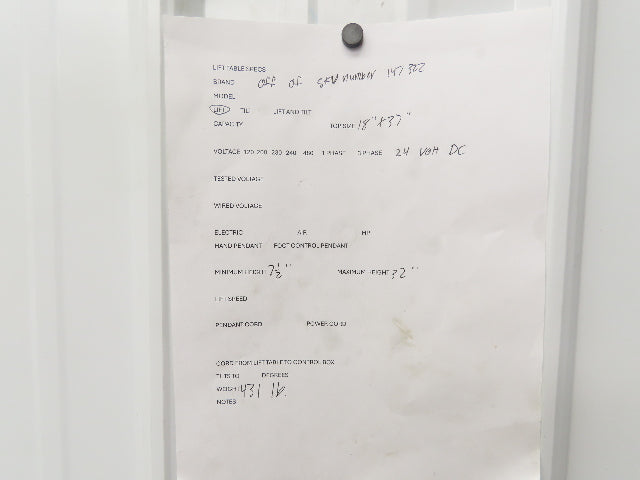 LIFT TABLE SPECS
BRAND OFF OF SKU number 147322
MODEL
LIFT TILT LIFT AND TILT
CAPACITY TOP SIZE 18" X 37"
VOLTAGE 120 200 230 240 460 1 PHASE 3 PHASE 24 Volt DC
TESTED VOLTAGE
WIRED VOLTAGE
ELECTRIC AIR HP
HAND PENDANT FOOT CONTROL PENDANT
MINIMUM HEIGHT 7½" MAXIMUM HEIGHT 32"
LIFT SPEED
PENDANT CORD POWER CORD
CORD FROM LIFT TABLE TO CONTROL BOX
TILTS TO DEGREES
WEIGHT 431 lb.
NOTES